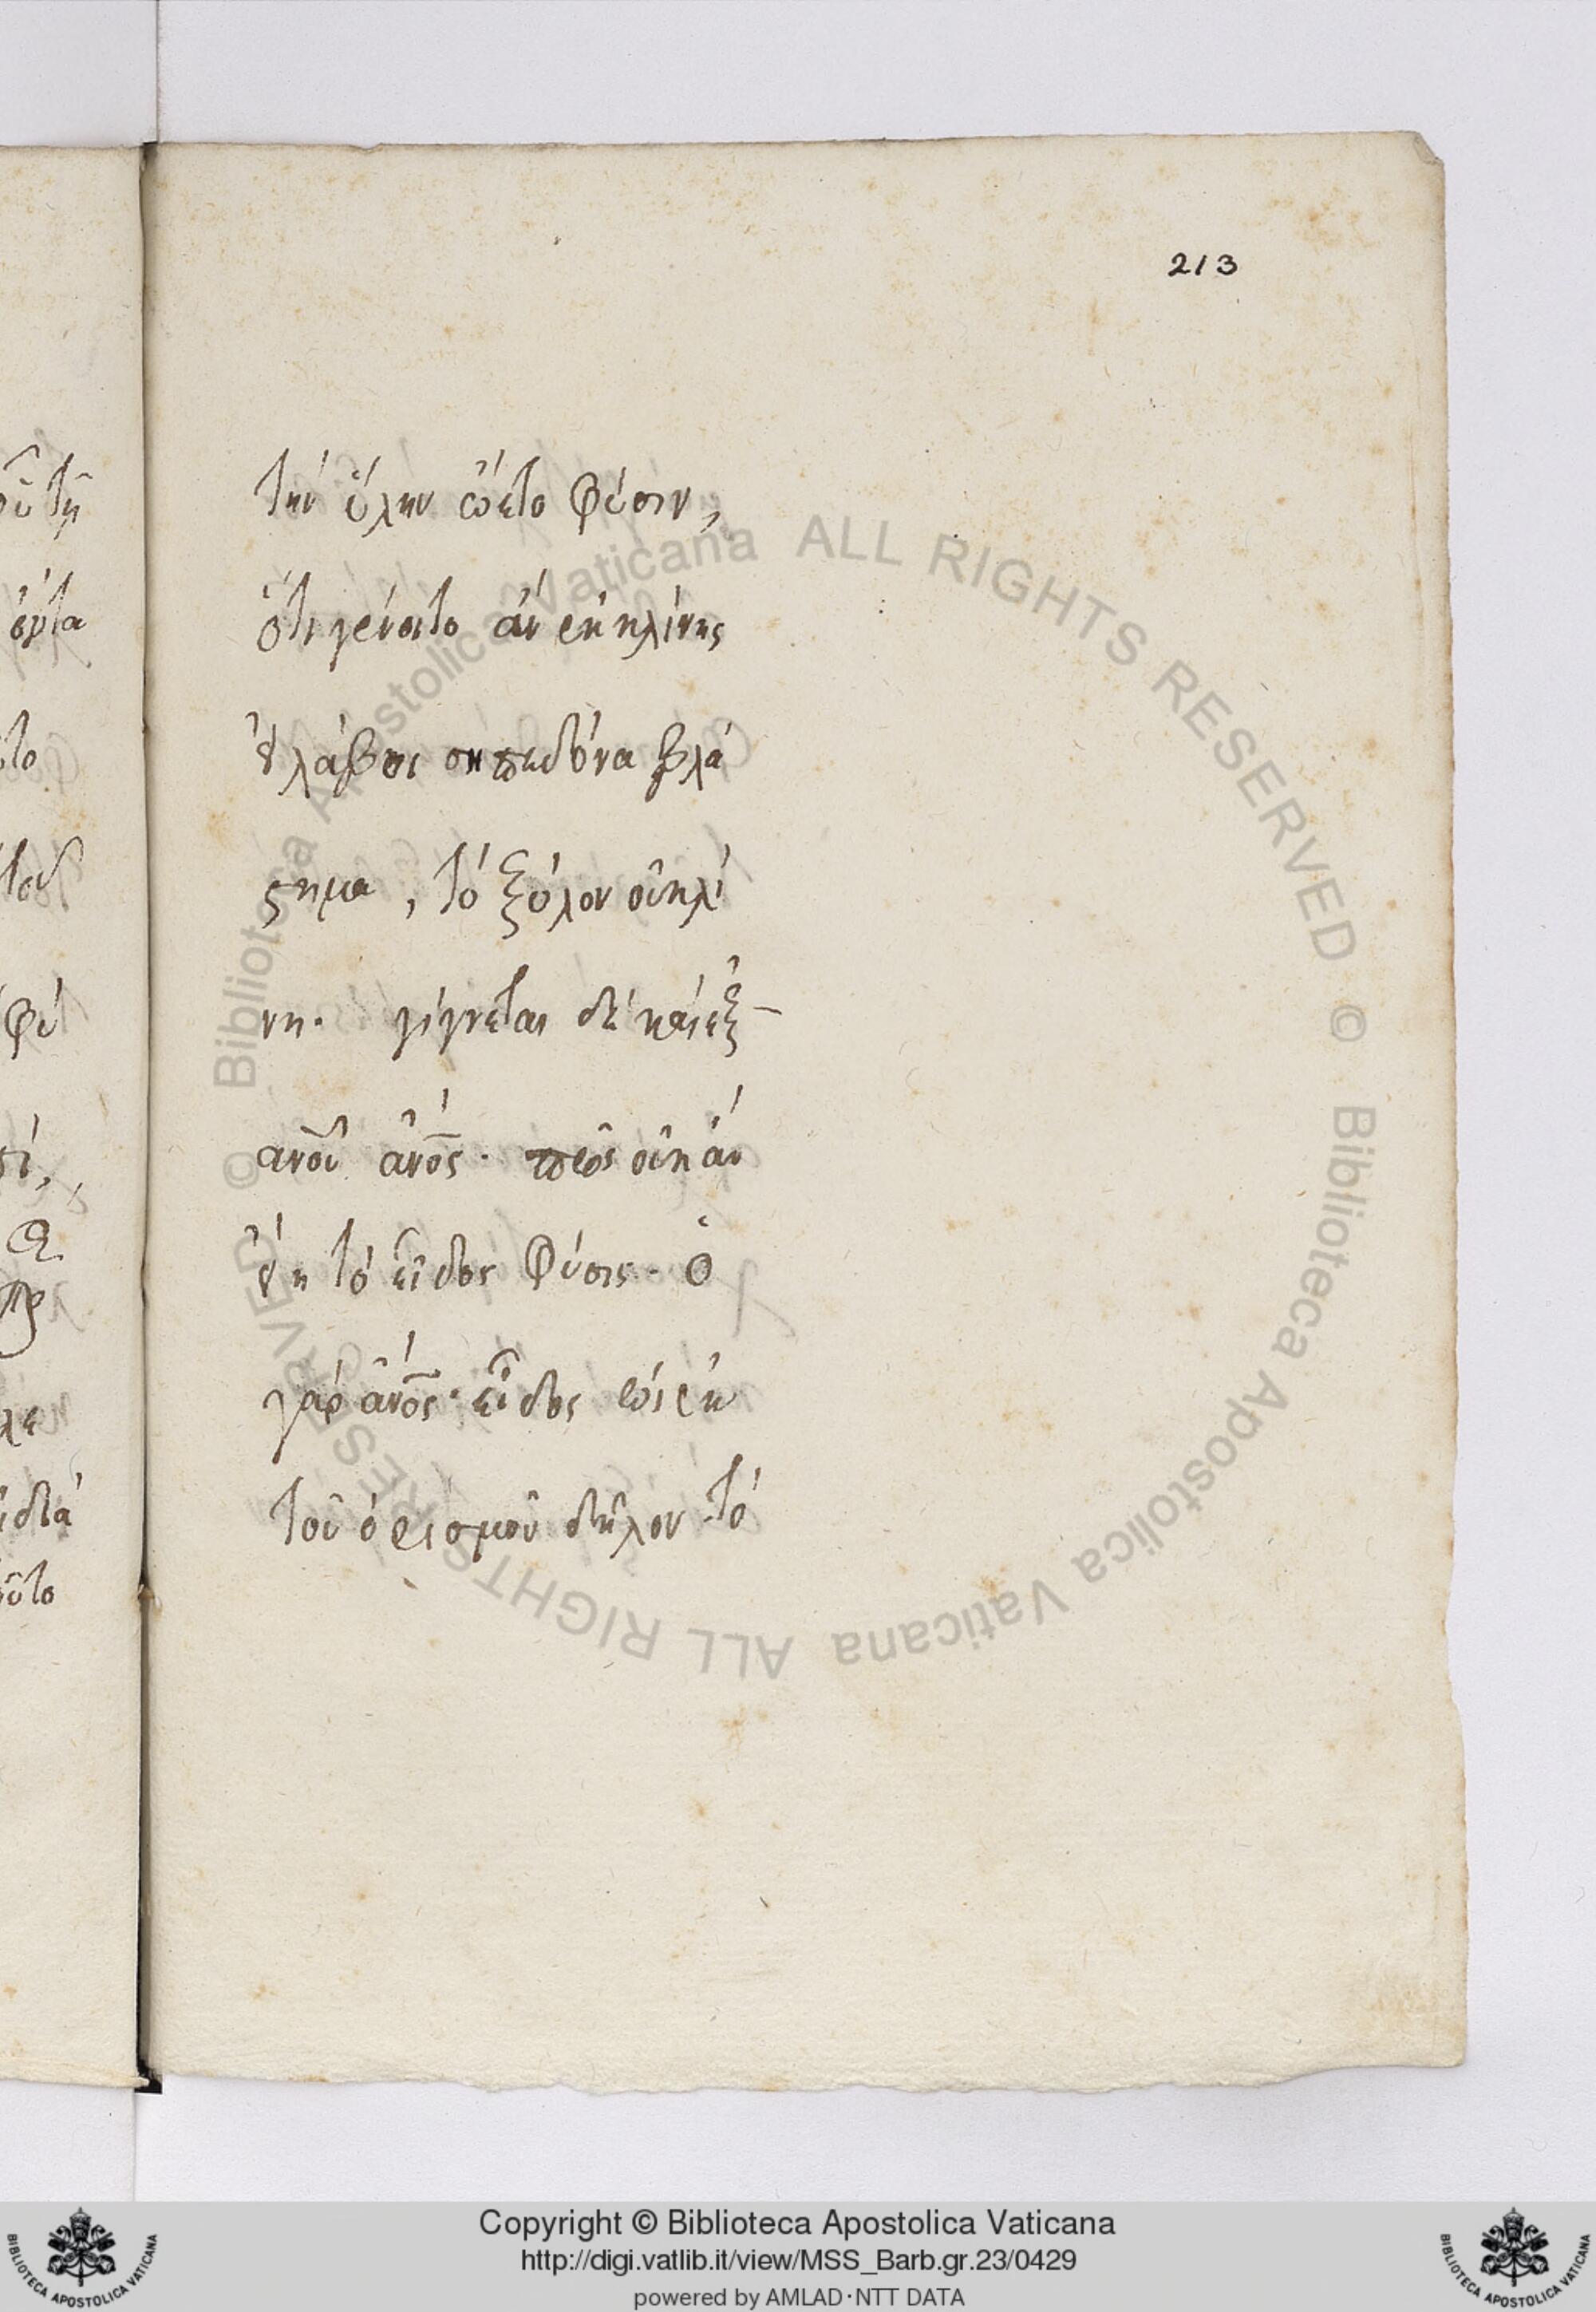 213
τὴν ὕλην ὤετο φύσιν,
ὅτι γένοιτο ἂν ἐκ κλίνης
εἰ λάβοι σηπεδόνα βλά
ςημα, τὸ ξύλον οὐ κλί
νη. γίγνεται δὲ καὶ ἐξ
ανου ανος. πῶς οὐκ ἂν
εἴη τὸ εἶδος φύσις. ὁ
γὰρ ανος. εἶδος
τοῦ ὁρισμοῦ δῆλον τὸ
Copyright © Biblioteca Apostolica Vaticana
http://digi.vatlib.it/view/MSS_Barb.gr.23/0429
powered by AMLAD·NTT DATA
© Biblioteca Apostolica Vaticana ALL RIGHTS RESERVED
© Biblioteca Apostolica Vaticana ALL RIGHTS RESERVED
BIBLIOTECA APOSTOLICA VATICANA
BIBLIOTECA APOSTOLICA VATICANA